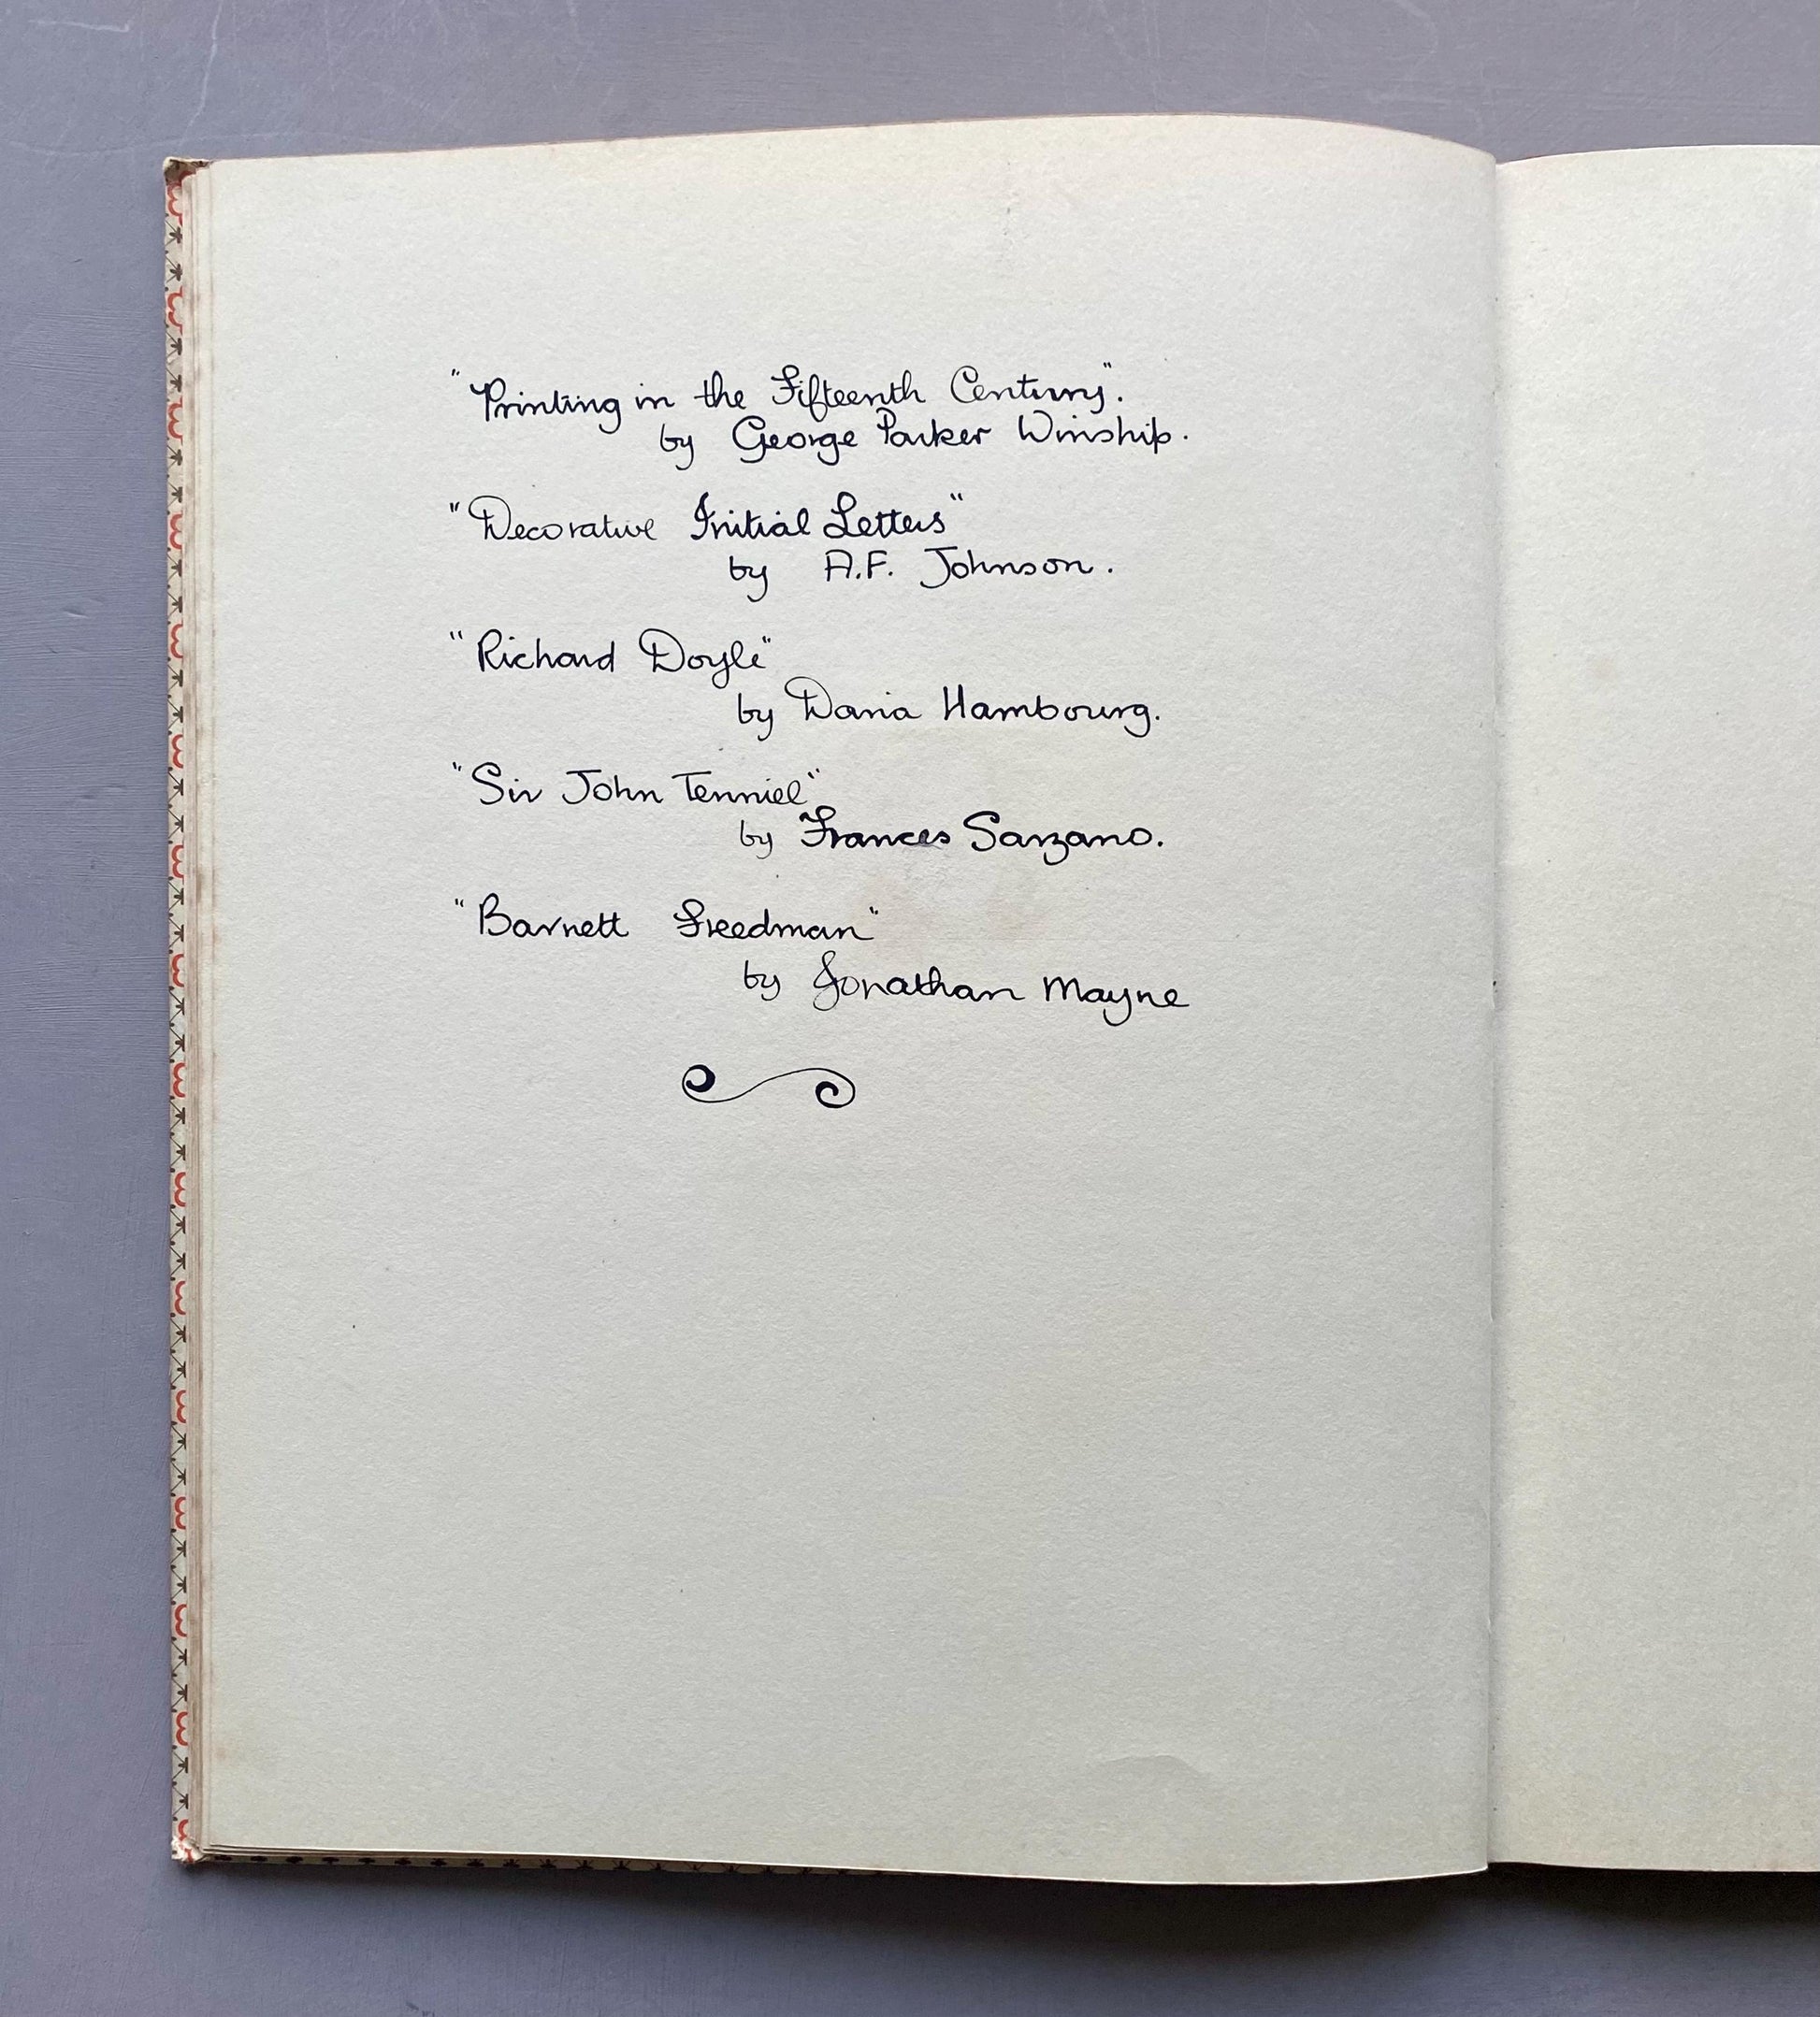 "Printing in the Fifteenth Century".
by George Parker Winship.
"Decorative Initial Letters"
by A.F. Johnson.
"Richard Doyle"
by Daria Hambourg.
"Sir John Tenniel"
by Frances Sarzano.
"Barnett Freedman"
by Jonathan Mayne